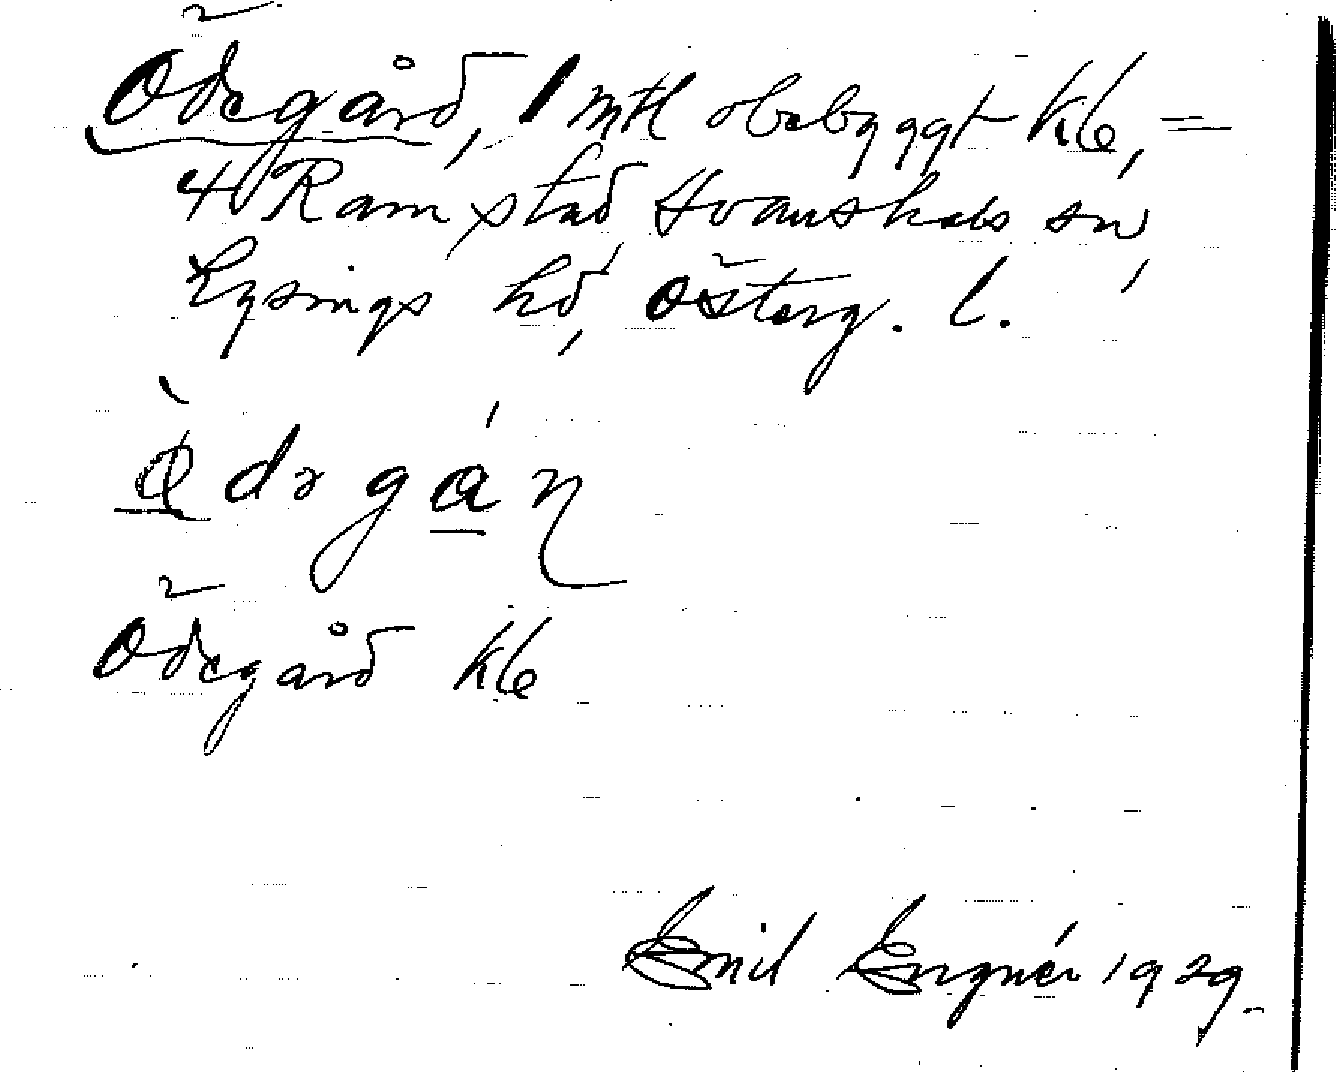 Ödegård, 1 mtl obebyggt kle, =
4 Ramstad Svanshals sn,
Lysings hd, Österg. l.
dəgá
Ödegård kle
Emil Engnér 1929.